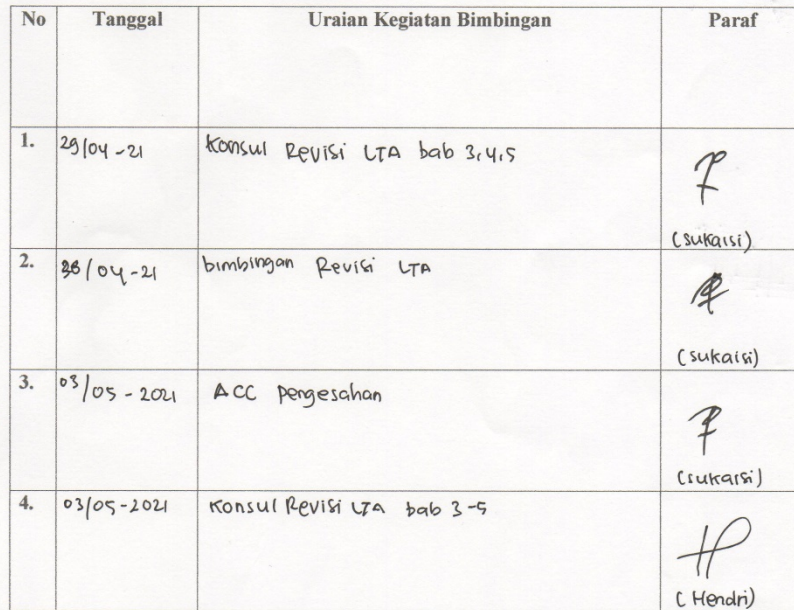 No Tanggal Uraian Kegiatan Bimbingan Paraf
1. 29/04-21 Konsul Revisi LTA bab 3,4,5
(Sukaisi)
2. /04-21 bimbingan Revisi LTA
(Sukaisi)
3. 03/05-2021 ACC pengesahan
(Sukaisi)
4. 03/05-2021 Konsul Revisi LTA bab 3-5
(Hendri)